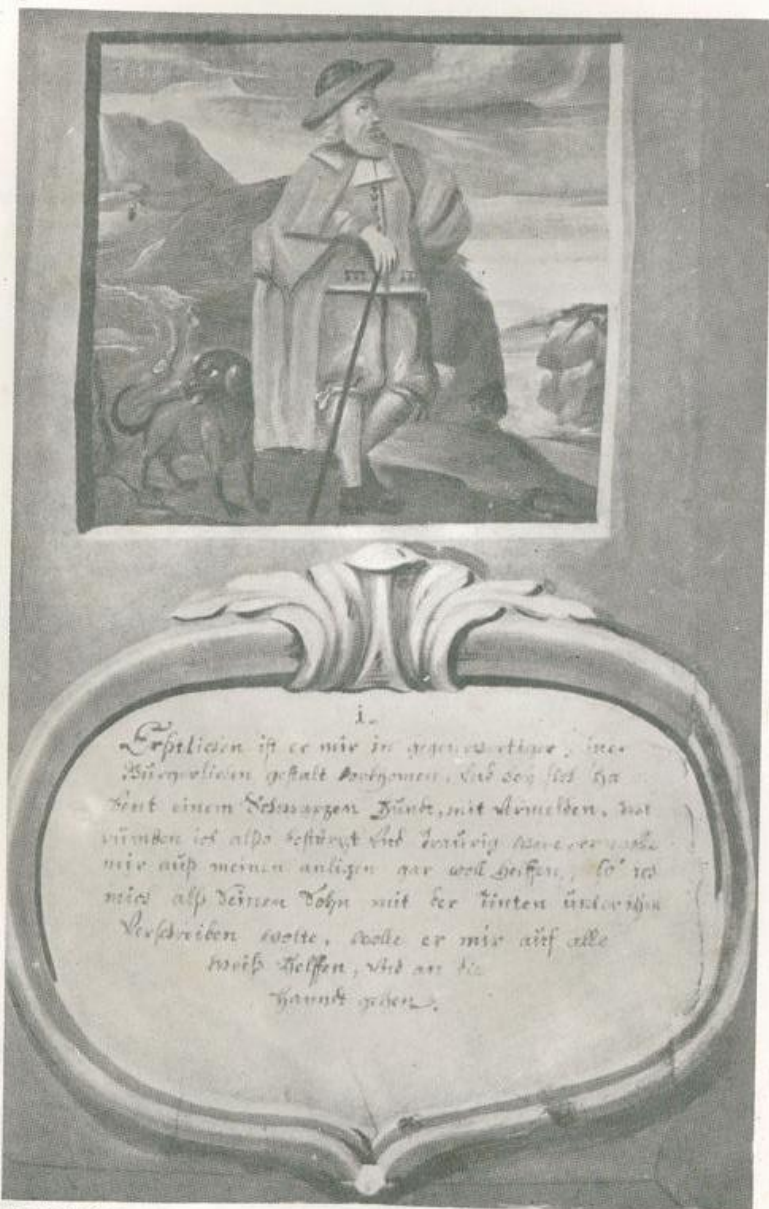 i.
Erstlichen ist er mir in gegenwertiger, in
Bürgerlichen gestalt vorkomen, und bey sich ha
bent einem Schwarzen Hundt, mit Vermelden, war
rümben ich also bestürzt und traurig were, er wolle
mir auß meinen anligen gar woll helffen, so ich
mich alß Seinen Sohn mit der Tinten under ihme
Verschreiben wolte, wolle er mir auf alle
weiß helffen, und an die
Hanndt gehen.